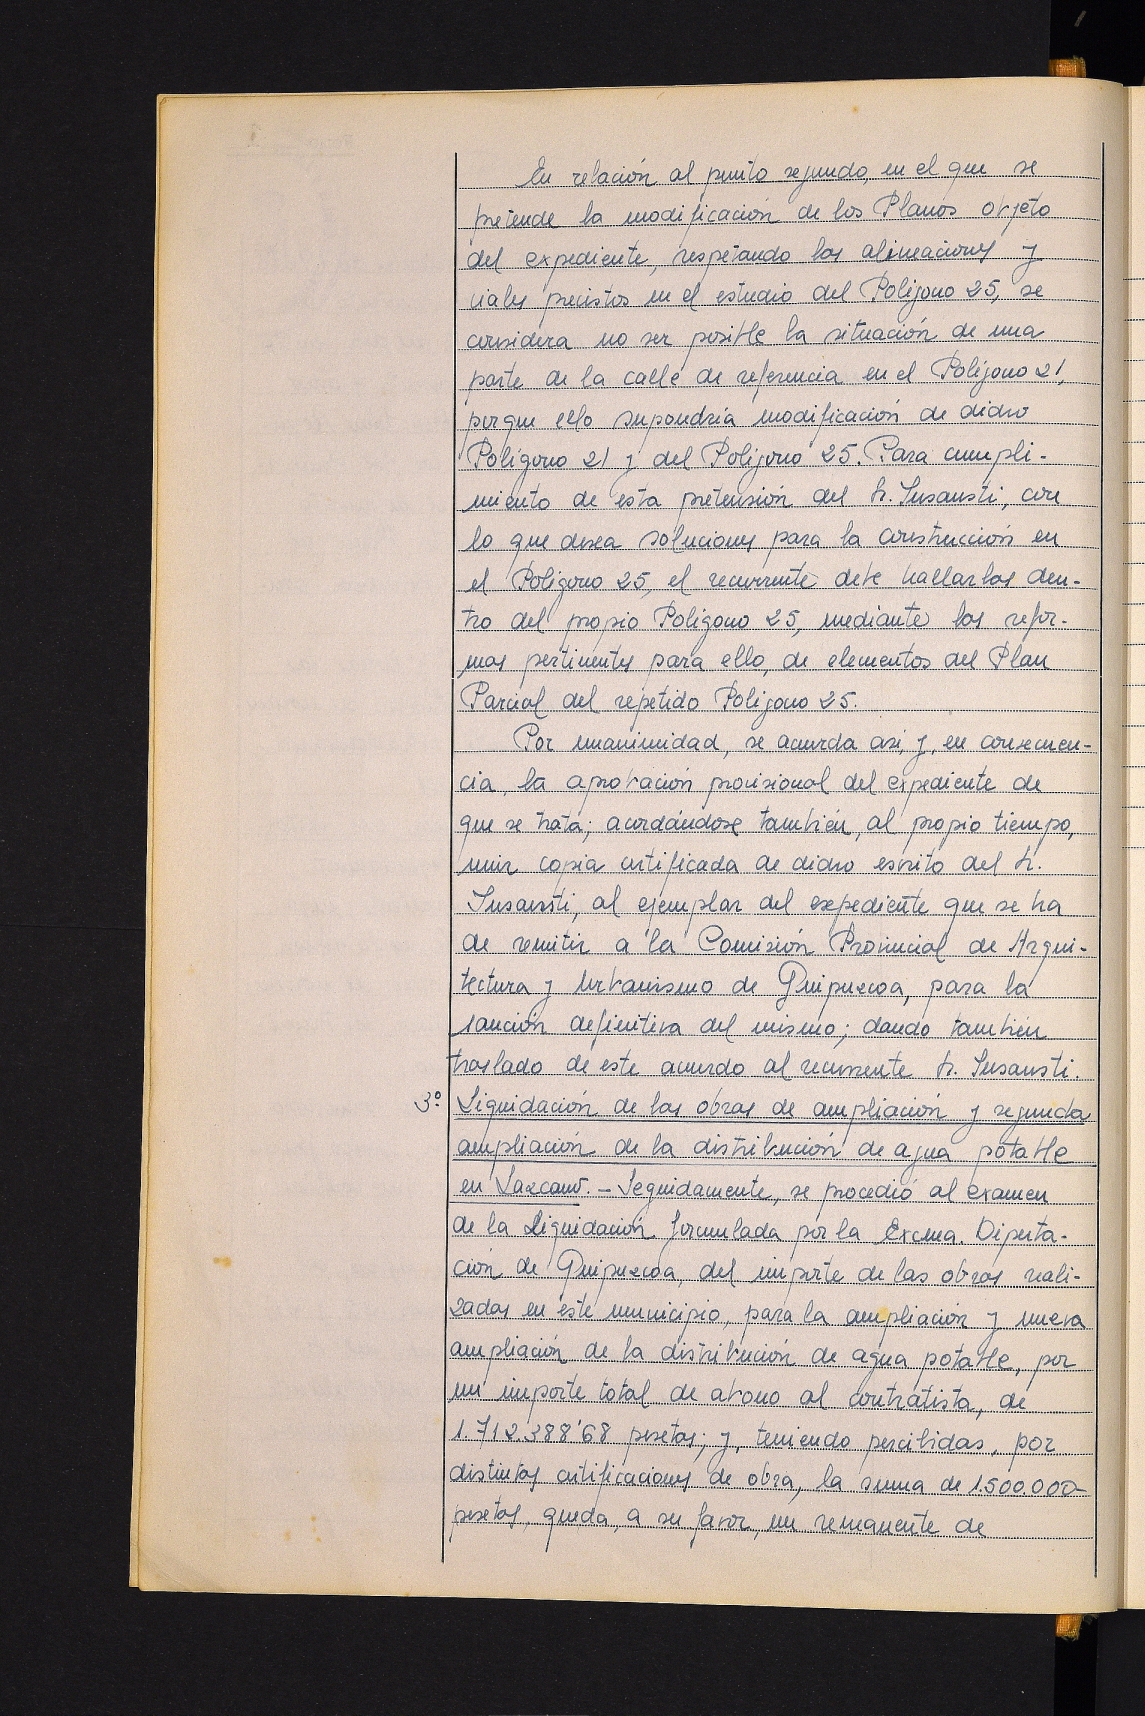 En relación al punto segundo, en el que se
pretende la modificación de los Planos objeto
del expediente, respetando las alineaciones y
viales previstos en el estudio del Polígono 25, se
considera no ser posible la situación de una
parte de la calle de referencia en el Polígono 21,
porque ello supondría modificación de dicho
Polígono 21 y del Polígono 25. Para cumpli-
miento de esta pretensión del Sr. Insausti, con
lo que desea soluciones para la construcción en
el Polígono 25, el recurrente debe hallarlas den-
tro del propio Polígono 25, mediante las refor-
mas pertinentes para ello, de elementos del Plan
Parcial del repetido Polígono 25.
Por unanimidad, se acuerda así, y, en consecuen-
cia, la aprobación provisional del expediente de
que se trata; acordándose también, al propio tiempo,
unir copia certificada de dicho escrito del Sr.
Insausti, al ejemplar del expediente que se ha
de remitir a la Comisión Provincial de Arqui-
tectura y Urbanismo de Guipuzcoa, para la
sanción definitiva del mismo; dando también
traslado de este acuerdo al recurrente Sr. Insausti.
3º. Liquidación de las obras de ampliación y segunda
ampliación de la distribución de agua potable
en Lazcano. - Seguidamente, se procedió al examen
de la Liquidación formulada por la Excma. Diputa-
ción de Guipuzcoa, del importe de las obras reali-
zadas en este municipio, para la ampliación y nueva
ampliación de la distribución de agua potable, por
un importe total de abono al contratista, de
1.712.388'68 pesetas; y, teniendo percibidas, por
distintas certificaciones de obra, la suma de 1.500.000-
pesetas, queda, a su favor, un remanente de